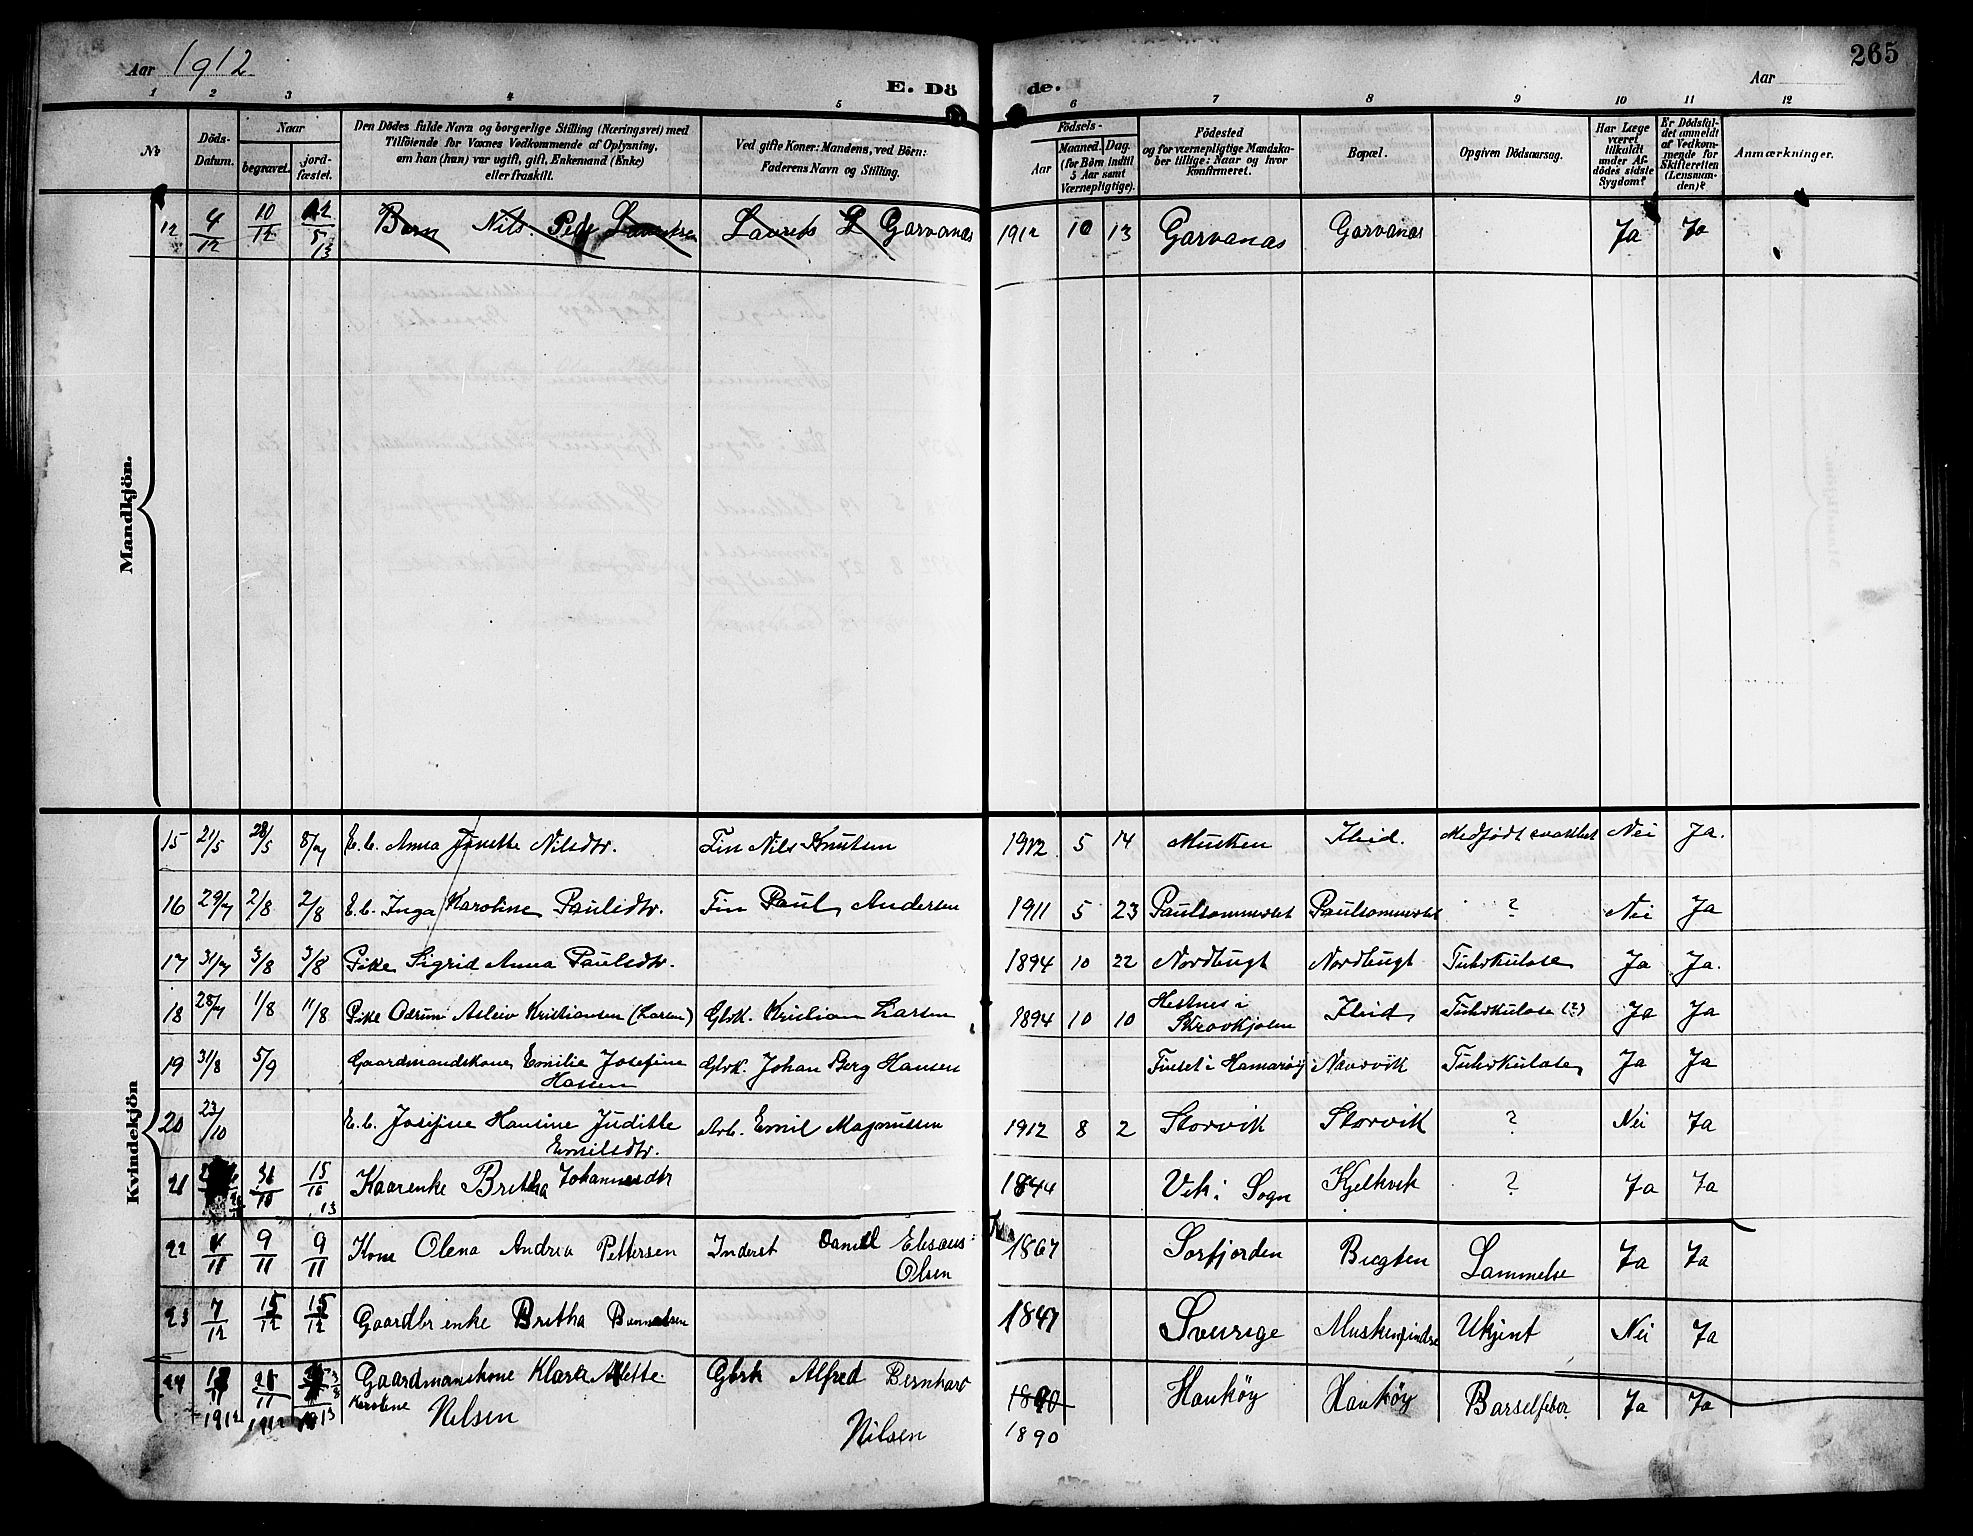 265
Aar 1912
E. Dö de.
Aar
1 2 3 4 5 6 7 8 9 10 11 12
No
Döds-
Datum.
Naar
begravet.
jord-
fæstet.
Den Dödes fulde Navn og borgerlige Stilling (Næringsvei) med
Tilföiende for Voxnes Vedkommende af Oplysning,
om han (hun) var ugift, gift, Enkemand (Enke)
eller fraskilt.
Ved gifte Koner: Mandens, ved Börn:
Faderens Navn og Stilling.
Födsels-
Aar
Maaned. Dag.
(for Börn indtil
5 Aar samt
Værnepligtige).
Födested
og for værnepligtige Mandska-
ber tillige: Naar og hvor
konfirmeret.
Bopæl.
Opgiven Dödsaarsag.
Har Læge
været
tilkaldt
under Af-
dödes sidste
Sygdom?
Er Dödsfal-
det anmeldt
af Vedkom-
mende for
Skifteretten
(Lensman-
den)?
Anmærkninger.
Mandkjön.
12 4/12 10/12 5/13 Barn Nils Peder Lauritsen Laurits Garvanas 1912 10 13 Garvanas Garvanas Ja Ja
Kvindekjön
15 21/5 28/5 8/7 E.b. Anna Jonette Nilsdtr. Fin Nils Knutsen 1912 5 14 Musken Medfødt svakhet Nei Ja.
16 29/7 2/8 2/8 E.b. Inga Karoline Paulsdtr. Fin Paul Andersen 1911 5 23 Paulsommersæt Paulsommersæt ? Nei Ja
17 31/7 3/8 3/8 Pike Sigrid Anna Paulsdtr. 1894 10 22 Nordbugt Nordbugt Tuberkulose Ja Ja.
18 28/7 1/8 11/8 Pike Kristiansen (Larsen) Gbrk. Kristian Larsen 1894 10 10 Tuberkulose (?) Ja Ja
19 31/8 5/9 Gaardmandskone Emilie Josefine
Hansen Gbrk. Johan Berg Hansen Finset i Hamarøy Narvik Tuberkulose Ja Ja
20 23/10 E.b. Josefine Hansine Juditte
Emilsdtr. Arb. Emil Magnussen 1912 8 2 Storvik Storvik ? Nei Ja
21 15/10 13 Kaarenke Britha Johannesdtr 1844 Vik i Sogn Kjelkvik ? Ja Ja
22 4/11 9/11 9/11 Kone Olena Andrea Pettersen Inderst Daniel Elisæus
Olsen 1867 Sorfjorden Bugten Lammelse Ja Ja
23 7/12 15/12 15/12 Gaardbr enke Britha 1847 Sverige Ukjent Nei Ja
24 1912 1912 1913 Gaardmanskone Klara Alette
Karoline Nilsen Gbrk Alfred Bernhard
Nilsen 1890 Haukøy Haukøy Barselfeber Ja Ja
1890